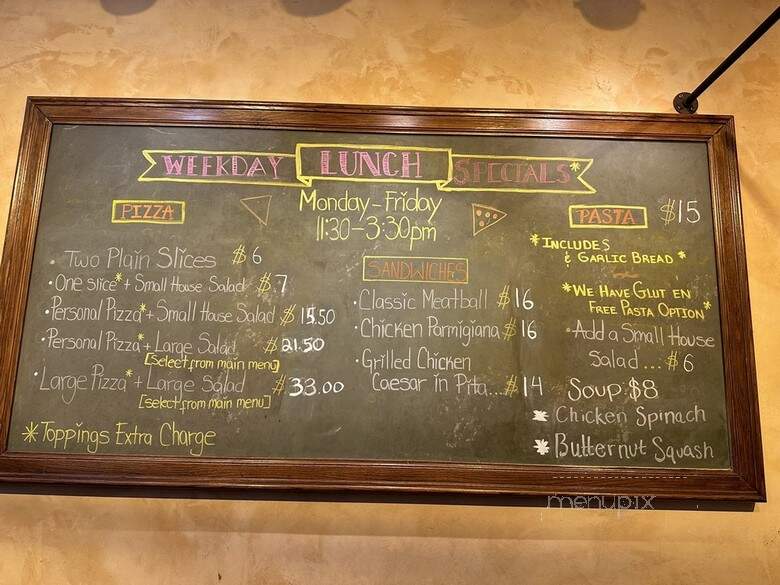 WEEKDAY LUNCH SPECIALS*
Monday - Friday
11:30-3:30pm
PIZZA
• Two Plain Slices $6
• One slice* + Small House Salad $7
• Personal Pizza* + Small House Salad $15.50
• Personal Pizza* + Large Salad $21.50
[select from main menu]
• Large Pizza* + Large Salad $33.00
[select from main menu]
* Toppings Extra Charge
SANDWICHES
• Classic Meatball $16
• Chicken Parmigiana $16
• Grilled Chicken
Caesar in Pita... $14
PASTA $15
* INCLUDES
& GARLIC BREAD *
* WE HAVE GLUT EN
FREE PASTA OPTION *
• Add a Small House
Salad... $6
Soup $8
* Chicken Spinach
* Butternut Squash
menupix